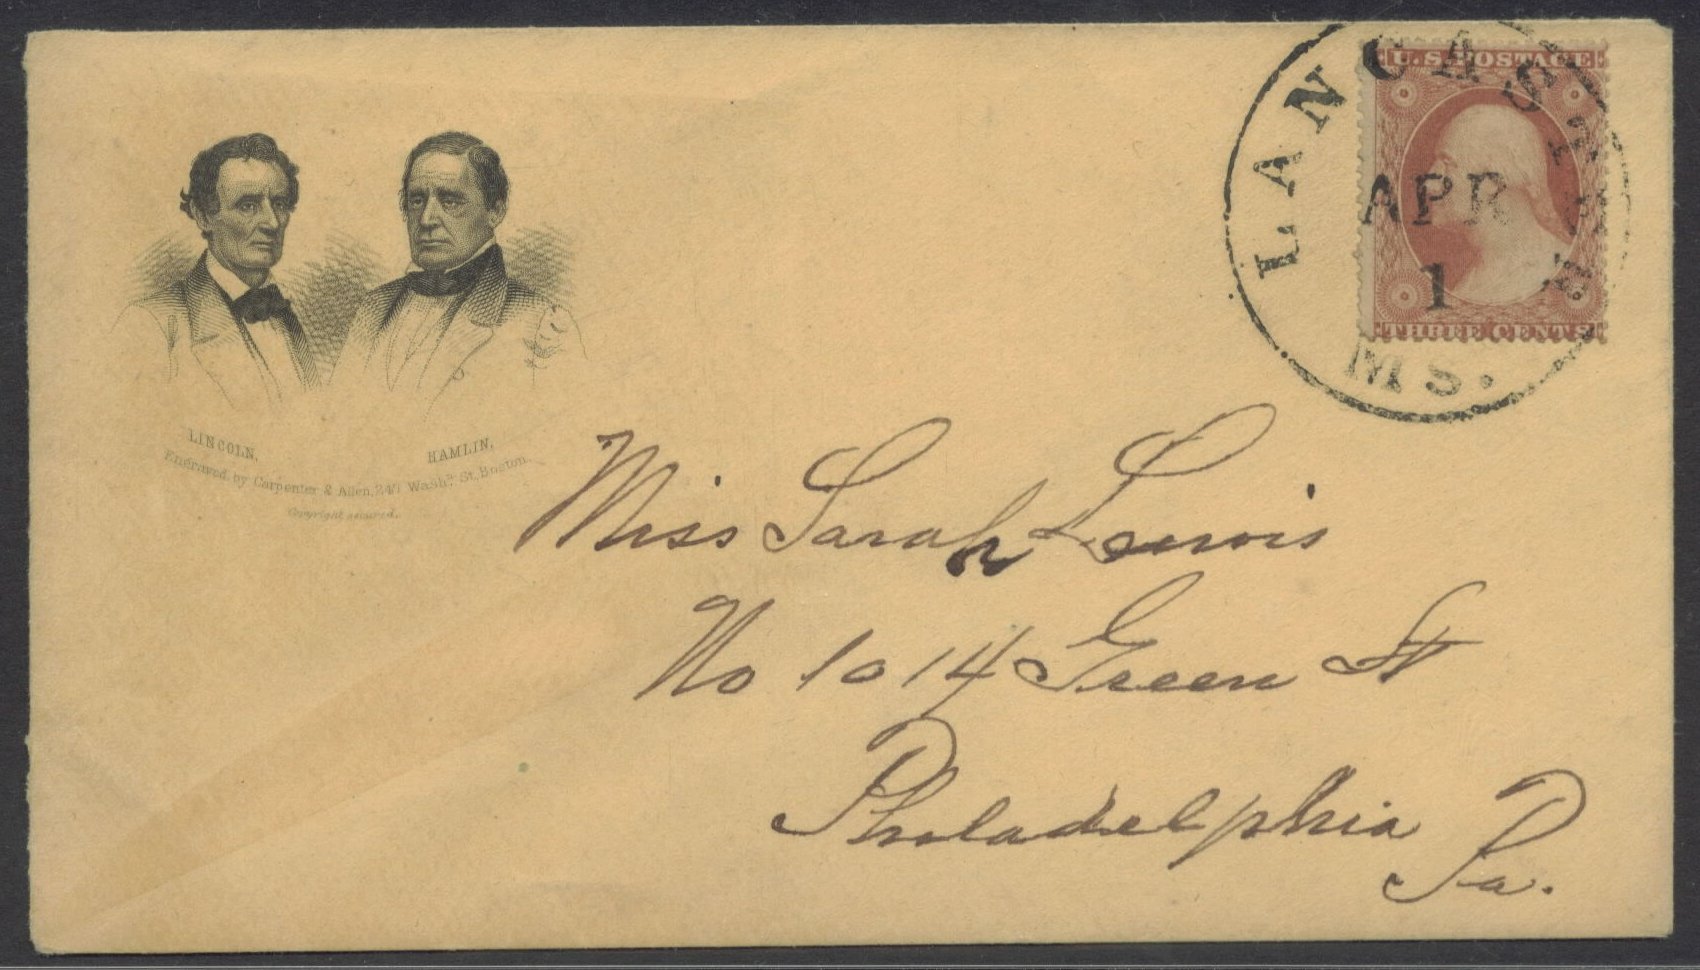 U.S. POSTAGE
LANCASTER
APR
1
MS.
THREE CENTS
LINCOLN, HAMLIN,
Engraved by Carpenter & Allen, 247 Washn. St, Boston.
Copyright secured.
Miss Sarah Lewis
No 1014 Green St
Philadelphia
Pa.